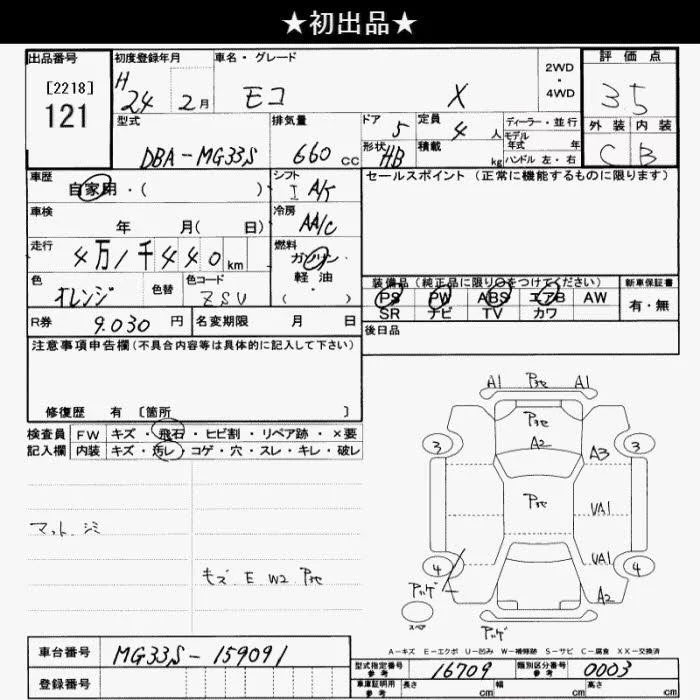 ★初出品★
出品番号 初度登録年月 車名・グレード 評価点
[2218] H 2WD
121 24 2月 モコ X ・ 35
4WD
型式 排気量 ドア 5 定員 4 人 ディーラー・並行 外装 内装
モデル年式 年
DBA-MG33S 660 cc 形状 HB 積載 kg ハンドル 左・右 C B
車歴 シフト セールスポイント (正常に機能するものに限ります)
自家用・( ) I A/T
車検 冷房
年 月( 日) AA/C
走行 燃料
4万1千440km ガソリン・
軽油・
( )
色 色替 色コード 装備品 (純正品に限り○をつけてください) 新車保証書
オレンジ ZSV PS PW ABS エアB AW 有・無
SR ナビ TV カワ
R券 9.030 円 名変期限 月 日 後日品
注意事項申告欄 (不具合内容等は具体的に記入して下さい)
修復歴 有 [箇所 ]
検査員 FW キズ・飛石・ヒビ割・リペア跡・×要
記入欄 内装 キズ・汚レ・コゲ・穴・スレ・キレ・破レ
A1 P九 A1
P九
A2
3 3
A3
P九
VA1
VA1
4 4
A2
スペア
マット シミ
キズ E W2
A-キズ E-エクボ U-凹み W-補修跡 S-サビ C-腐食 XX-交換済
車台番号 MG33S-159091
型式指定番号 16709 類別区分番号 0003
参考 参考
登録番号 車庫証明用 長さ cm 幅 cm 高さ cm
参考